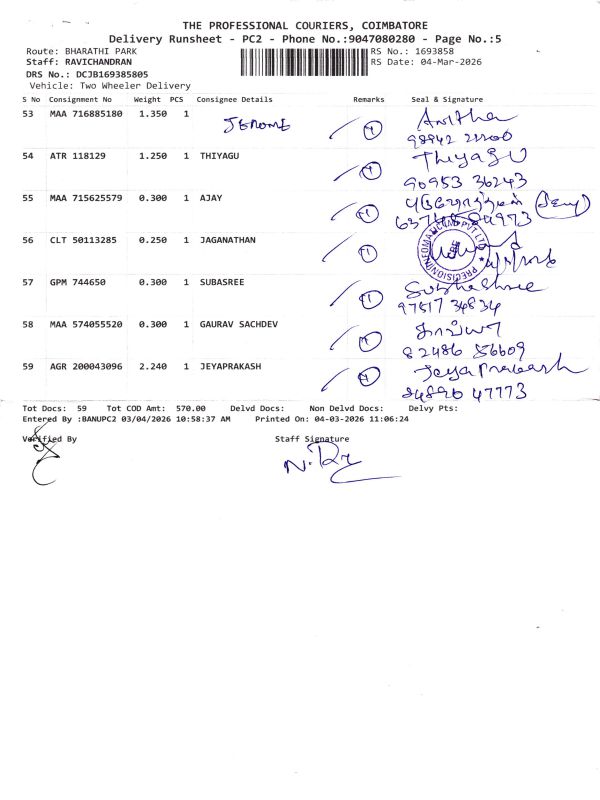 THE PROFESSIONAL COURIERS, COIMBATORE
Delivery Runsheet - PC2 - Phone No.:9047080280 - Page No.:5
Route: BHARATHI PARK RS No.: 1693858
Staff: RAVICHANDRAN RS Date: 04-Mar-2026
DRS No.: DCJB169385805
Vehicle: Two Wheeler Delivery
S No Consignment No Weight PCS Consignee Details Remarks Seal & Signature
53 MAA 716885180 1.350 1 JEROME Anitha
98942 21100
54 ATR 118129 1.250 1 THIYAGU Thiyagu
90953 36243
55 MAA 715625579 0.300 1 AJAY
56 CLT 50113285 0.250 1 JAGANATHAN
57 GPM 744650 0.300 1 SUBASREE Subhashree
97517 34834
58 MAA 574055520 0.300 1 GAURAV SACHDEV
82486 56609
59 AGR 200043096 2.240 1 JEYAPRAKASH Jeya Prakash
84890 47773
Tot Docs: 59 Tot COD Amt: 570.00 Delvd Docs: Non Delvd Docs: Delvy Pts:
Entered By :BANUPC2 03/04/2026 10:58:37 AM Printed On: 04-03-2026 11:06:24
Verified By Staff Signature